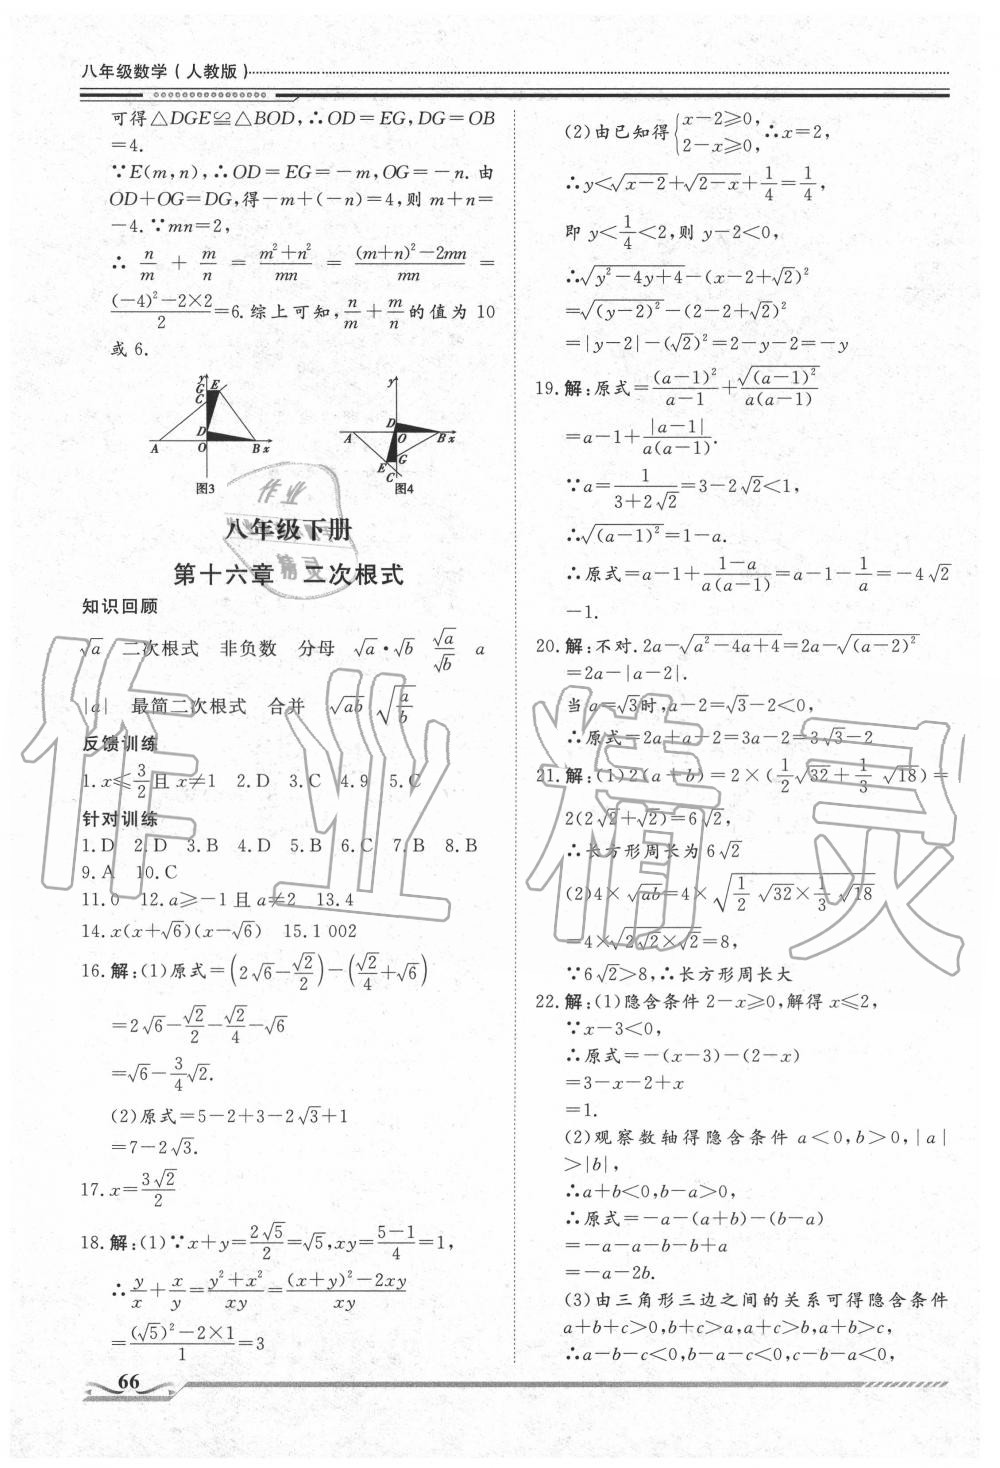 八年级数学(人教版)
可得△DGE≌△BOD,∴OD=EG,DG=OB
=4.
∵E(m,n),∴OD=EG=-m,OG=-n.由
OD+OG=DG,得-m+(-n)=4,则 m+n=
-4.∵mn=2,
∴ n/m + m/n = (m²+n²)/mn = ((m+n)²-2mn)/mn =
((-4)²-2×2)/2=6.综上可知,n/m+m/n的值为 10
或 6.
图3 图4
八年级下册
第十六章 二次根式
知识回顾
√a 二次根式 非负数 分母 √a·√b √a/√b a
|a| 最简二次根式 合并 √ab √(a/b)
反馈训练
1.x≤3/2且 x≠1 2.D 3.C 4.9 5.C
针对训练
1.D 2.D 3.B 4.D 5.B 6.C 7.B 8.B
9.A 10.C
11.0 12.a≥-1且 a≠2 13.4
14.x(x+√6)(x-√6) 15.1 002
16.解:(1)原式=(2√6-√2/2)-(√2/4+√6)
=2√6-√2/2-√2/4-√6
=√6-3/4√2.
(2)原式=5-2+3-2√3+1
=7-2√3.
17.x=3√2/2
18.解:(1)∵x+y=2√5/2=√5,xy=(5-1)/4=1,
∴y/x+x/y=(y²+x²)/xy=((x+y)²-2xy)/xy
=((√5)²-2×1)/1=3
66
(2)由已知得{x-2≥0, 2-x≥0,∴x=2,
∴y<√(x-2)+√(2-x)+1/4=1/4,
即 y<1/4<2,则 y-2<0,
∴√(y²-4y+4)-(x-2+√2)²
=√(y-2)²-(2-2+√2)²
=|y-2|-(√2)²=2-y-2=-y
19.解:原式=(a-1)²/(a-1)+√(a-1)²/(a(a-1))
=a-1+|a-1|/(a(a-1)).
∵a=1/(3+2√2)=3-2√2<1,
∴√(a-1)²=1-a.
∴原式=a-1+(1-a)/(a(a-1))=a-1-1/a=-4√2
-1.
20.解:不对.2a-√(a²-4a+4)=2a-√(a-2)²
=2a-|a-2|.
当 a=√3时,a-2=√3-2<0,
∴原式=2a+a-2=3a-2=3√3-2
21.解:(1)2(a+b)=2×(1/2√32+1/3√18)=
2(2√2+√2)=6√2,
∴长方形周长为 6√2
(2)4×√ab=4×√(1/2√32×1/3√18)
=4×√(2√2×√2)=8,
∵6√2>8,∴长方形周长大
22.解:(1)隐含条件 2-x≥0,解得 x≤2,
∵x-3<0,
∴原式=-(x-3)-(2-x)
=3-x-2+x
=1.
(2)观察数轴得隐含条件 a<0,b>0,|a|
>|b|,
∴a+b<0,b-a>0,
∴原式=-a-(a+b)-(b-a)
=-a-a-b-b+a
=-a-2b.
(3)由三角形三边之间的关系可得隐含条件
a+b+c>0,b+c>a,a+c>b,a+b>c,
∴a-b-c<0,b-a-c<0,c-b-a<0,
作业精灵